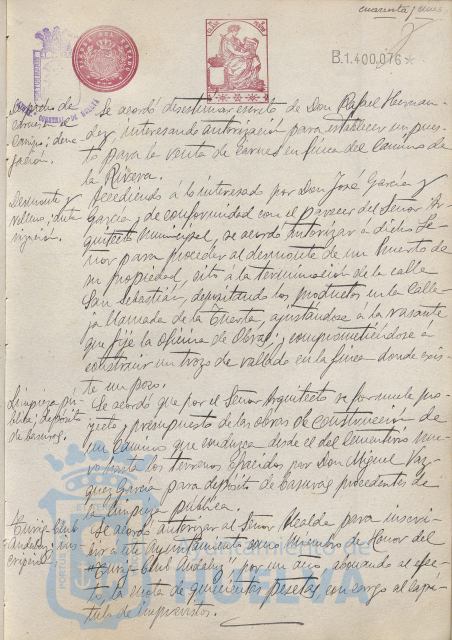 cuarenta y
B.1.400,076*
Depósito de
carnes;
Campo; dene-
gación.
Se acordó desestimar escrito de Don Rafael Hernan-
dez, interesando autorización para establecer un pues-
to para la venta de carnes en finca del Camino de
la Rivera.
Desmonte y
relleno; auto-
rización.
Accediendo á lo interesado por Don José García y
García, y de conformidad con el parecer del Señor Ar-
quitecto Municipal, se acordó autorizar á dicho Se-
ñor para proceder al desmonte de un Huerto de
su propiedad, sito á la terminación de la calle
San Sebastián, depositando los productos en la Calle-
ja llamada de la Huerta, ajustándose á la rasante
que fije la oficina de Obras; y comprometiéndose á
construir un trozo de vallado en la finca donde exis-
te un pozo.
Limpieza pú-
blica; depósito
de basuras.
Se acordó que por el Señor Arquitecto se formule pro-
yecto y presupuesto de las obras de construcción de
un Camino que conduzca desde el del Cementerio nue-
vo hasta los terrenos ofrecidos por Don Miguel Váz-
quez García para depósito de basuras procedentes de
la limpieza pública.
Aº Turing-Club
Andaluz; ins-
cripción.
Se acordó autorizar al Señor Alcalde para inscri-
bir á este Ayuntamiento como miembro de Honor del
"Turing-Club Andaluz", por un año, abonando al efec-
to, la cuota de quinientas pesetas con cargo al capí-
tulo de imprevistos.
Ayuntamiento de
HUELVA